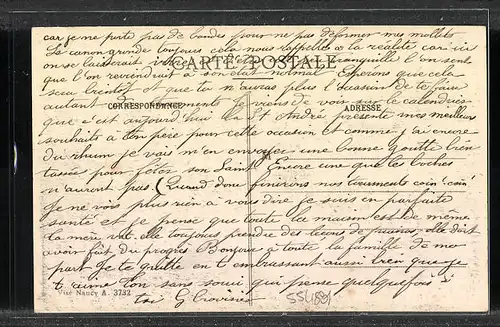 car je ne porte pas de bandes pour ne pas déformer mes mollets
Le canon gronde toujours cela nous rappelle à la réalité car ici
on se laisserait tranquille l'on sent
CARTE POSTALE
que l'on reviendrait à son état normal Espérons que cela
sera bientôt et que tu n'auras plus l'occasion de te faire
autant Je viens de voir sur le calendrier
CORRESPONDANCE
ADRESSE
que c'est aujourd'hui la St André présente mes meilleurs
souhaits à ton père pour cette occasion et comme j'ai encore
du rhum je vais m'en envoyer une bonne goutte bien
tassée pour fêter son Saint Encore une que les boches
n'auront pas. (Quand donc finirons nos tourments coin-coin
Je ne vois plus rien à vous dire je suis en parfaite
santé et je pense que toute la maison est de même
la mère va-t-elle toujours prendre des leçons de elle doit
avoir fait du progrès Bonjour à toute la famille de ma
part Je te quitte en t'embrassant aussi bien que je
t'aime ton sans souci qui pense quelquefois à
toi G
Visé Nancy A. 3732
554891